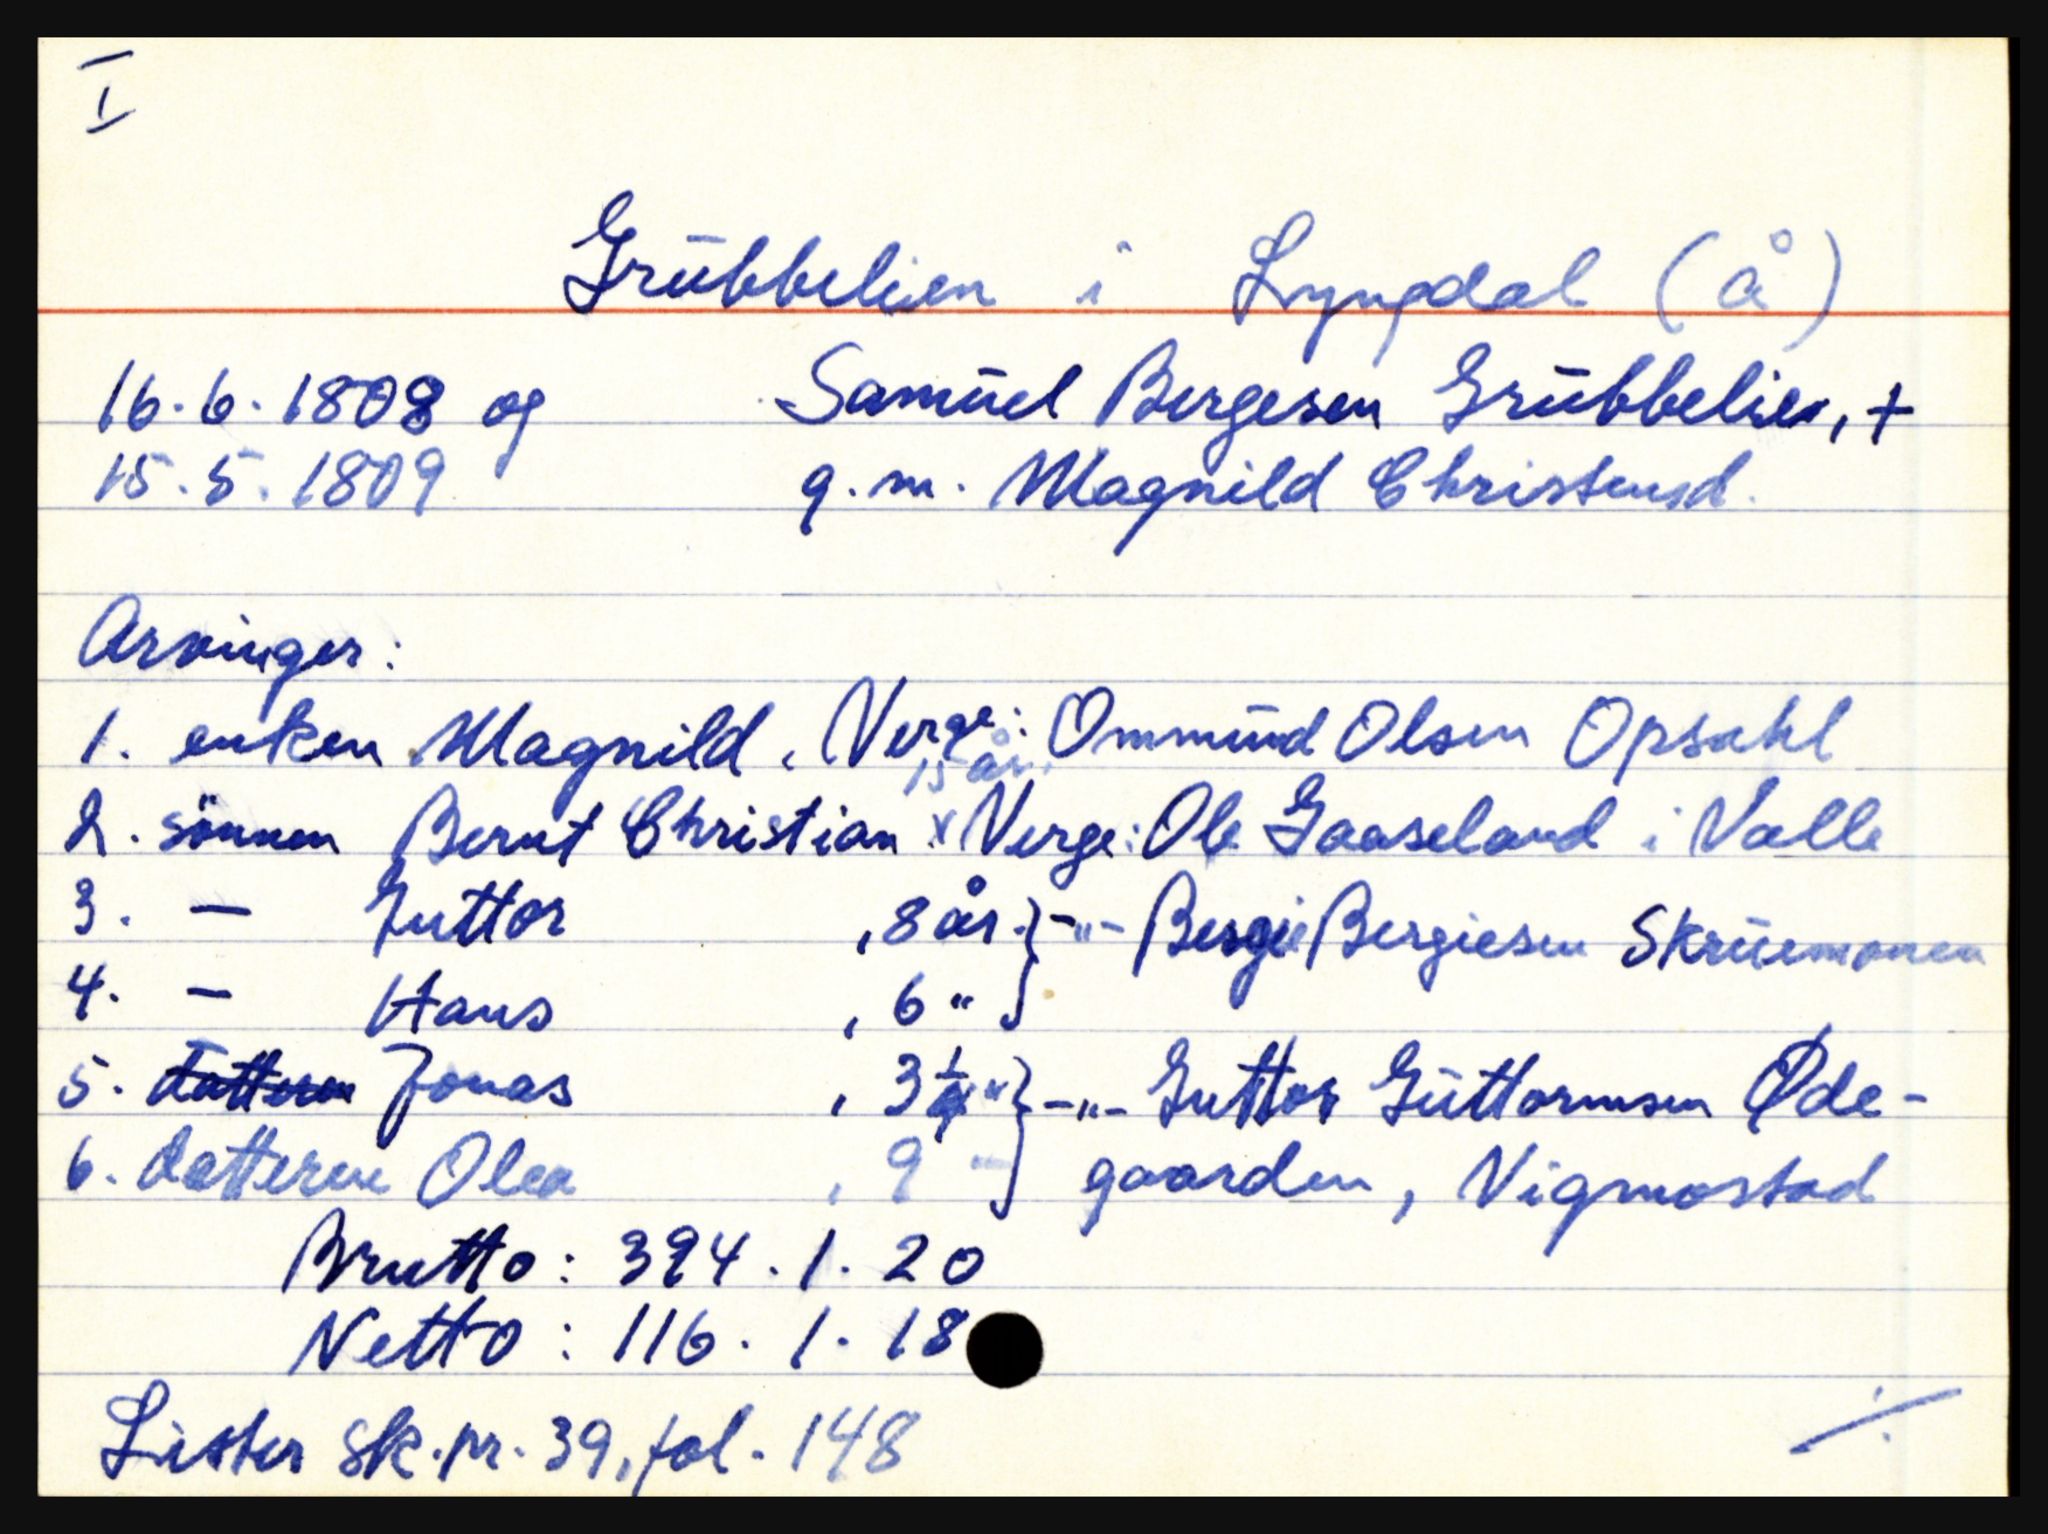 I
Grūbbelien i Lyngdal (Å)
16.6.1808 og Samūel Bergesen Grūbbelien, +
15.5.1809 g.m. Magnild Christensd.
Arvinger:
1. enken Magnild. Verge: Ommūnd Olsen Opsahl
15 år.
2. sönnen Bernt Christian x Verge: Ole Gaaseland i Valle
3. — Guttor , 8 år. } -"- Bergie Bergiesen Skrūemonen
4. — Hans , 6 " }
5. Jonas , 3 1/4 " } -"- Guttor Gūttormsen Øde-
6. datteren Olea , 9 — } gaarden, Vigmostad
Brutto: 394.1.20
Netto: 116.1.18
Lister sk.pr. 39, fol. 148
./.